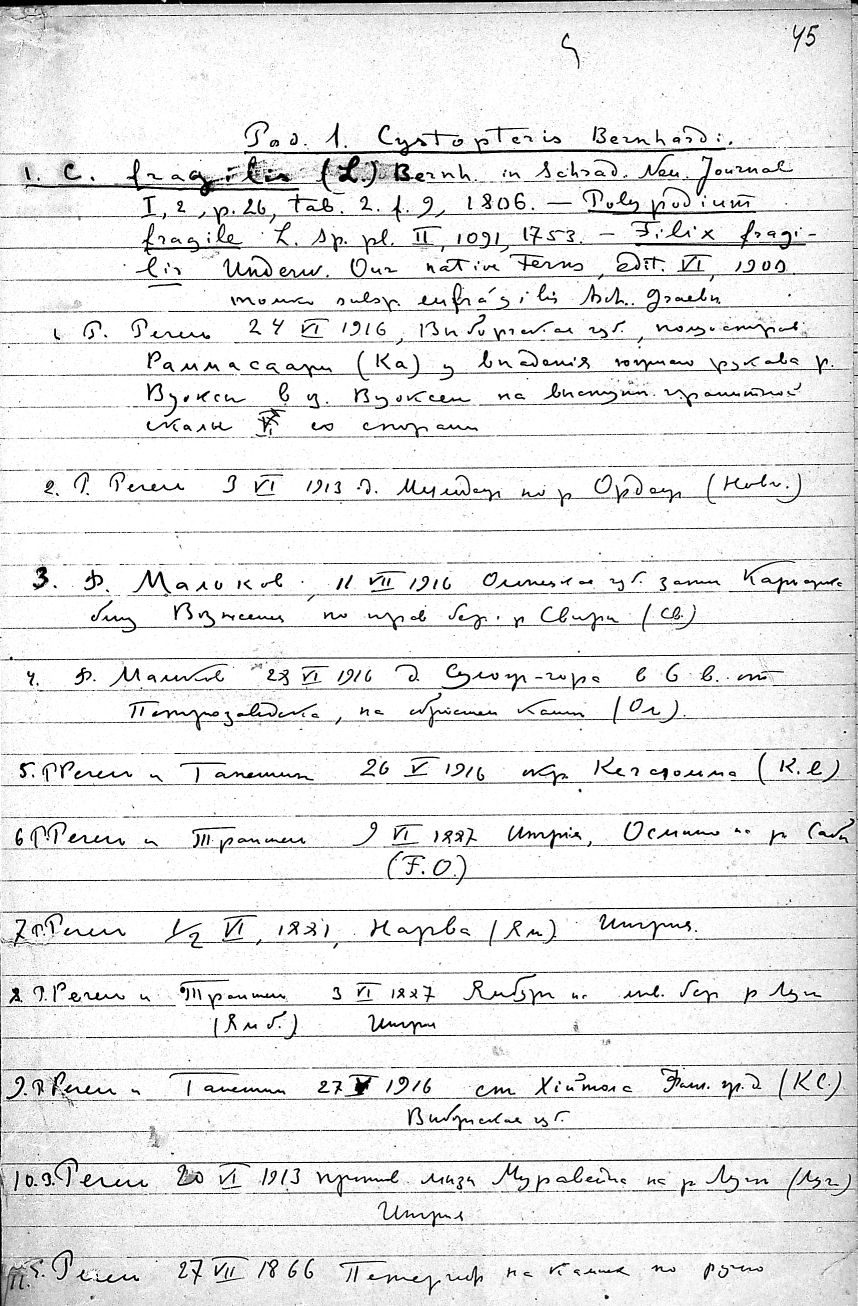 45
Род. 1. Cystopteris Bernhardi.
1. C. fragilis (L.) Bernh. in Schrad. Neu. Journal
I, 2, p. 26, tab. 2. f. 9, 1806. — Polypodium
fragile L. Sp. pl. II, 1091, 1753. — Filix fragi-
lis Underw. Our native Ferns, edit. VI, 1900
только subsp. eufrágilis Asch. Graebn
Р. Регель 24 VI 1916, Выборгская губ., полуостров
Раммасаари (Ка) у впадения южного рукава р.
Вуоксы в оз. Вуоксен на выступ. гранитной
скалы VI со спорами
2. Р. Регель 3 VI 1913 д. по р Ордеж (Новг.)
3. Ф. Малков, 11 VII 1916 Олонецкая губ.
близ Вознесенья по прав бер. р Свири (Св.)
4. Ф. Малков 28 VI 1916 д. Сулож-гора в 6 в. от
Петрозаводска, на обросшем камн (Ол).
5. Р Регель и Ганешин 26 V 1916 окр Кексгольма (К.в)
6 Р.Регель и Траншель 9 VI 1887 Ингрия, Осьмино на р Саба
(F.O.)
7 Р.Регель 1/2 VI, 1881, Нарва (Ям) Ингрия.
8. Р.Регель и Траншель 3 VI 1887 Ямбург на лев. бер р Луги
(Ямб.) Ингрия
9. Р Регель и Ганешин 27 V 1916 ст Хійтола Фин. ж.д (КС.)
Выборгская губ.
10. Э. Регель 20 VI 1913 против. мызы Муравейна на р Луги (Луж)
Ингрия
11. Регель 27 VII 1866 Петергоф на камнях по ручью